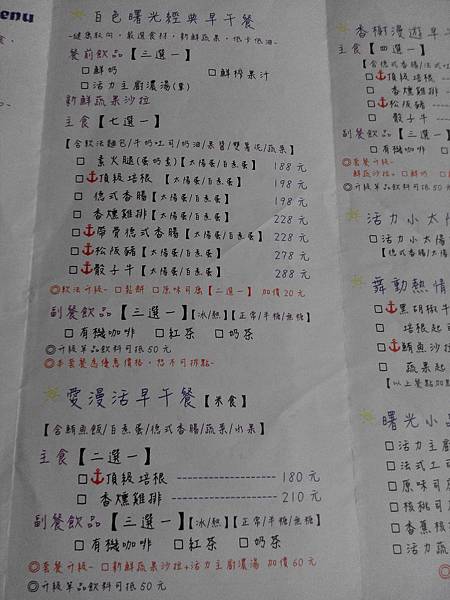 enu
百色曙光經典早午餐
~健康取向,嚴選食材,新鮮蔬果,低卡低油~
餐前飲品【三選一】
□鮮奶 □鮮榨果汁
□活力主廚濃湯(葷)
新鮮蔬果沙拉
主食【七選一】
【含軟法麵包/牛奶吐司/奶油/果醬/雙薯泥/蔬菜】
□ 素火腿(蛋奶素)【太陽蛋/白煮蛋】 188元
□⚓頂級培根【太陽蛋/白煮蛋】 198元
□ 德式香腸【太陽蛋/白煮蛋】 198元
□ 香燻雞排【太陽蛋/白煮蛋】 228元
□⚓帶骨德式香腸【太陽蛋/白煮蛋】 228元
□⚓松阪豬【太陽蛋/白煮蛋】 278元
□⚓骰子牛【太陽蛋/白煮蛋】 288元
◎軟法升級~□鬆餅 □原味可頌【二選一】 加價20元
副餐飲品【三選一】【冰/熱】【正常/半糖/無糖】
□有機咖啡 □紅茶 □奶茶
◎升級單品飲料可抵50元
◎本套餐為優惠價格,恕不可折點~
愛漫活早午餐【米食】
【含鮪魚飯/白煮蛋/德式香腸/蔬菜/水果】
主食【二選一】
□⚓頂級培根 ---------------- 180元
□ 香燻雞排 ---------------- 210元
副餐飲品【三選一】【冰/熱】【正常/半糖/無糖】
□有機咖啡 □紅茶 □奶茶
◎套餐升級~□新鮮蔬果沙拉+活力主廚濃湯 加價60元
◎升級單品飲料可抵50元
香榭漫遊早
主食【四選一】
【含德式香腸/法式吐
□⚓頂級培根
□ 香燻雞排
□⚓松阪豬
□ 骰子牛
副餐飲品【三選一】
□有機咖啡
◎套餐升級~
鮮蔬沙拉+□鮮奶
◎升級單品飲料可抵50
活力小太陽
□活力太陽
【德式香腸/太陽
舞動熱情
□⚓黑胡椒牛
□ 培根起司
□⚓鮪魚沙拉
□ 蔬果起
【以上餐點加
曙光小品
□活力主廚
□法式土司
□原味可頌
□核桃可頌
□香蕉核
□活力蔬